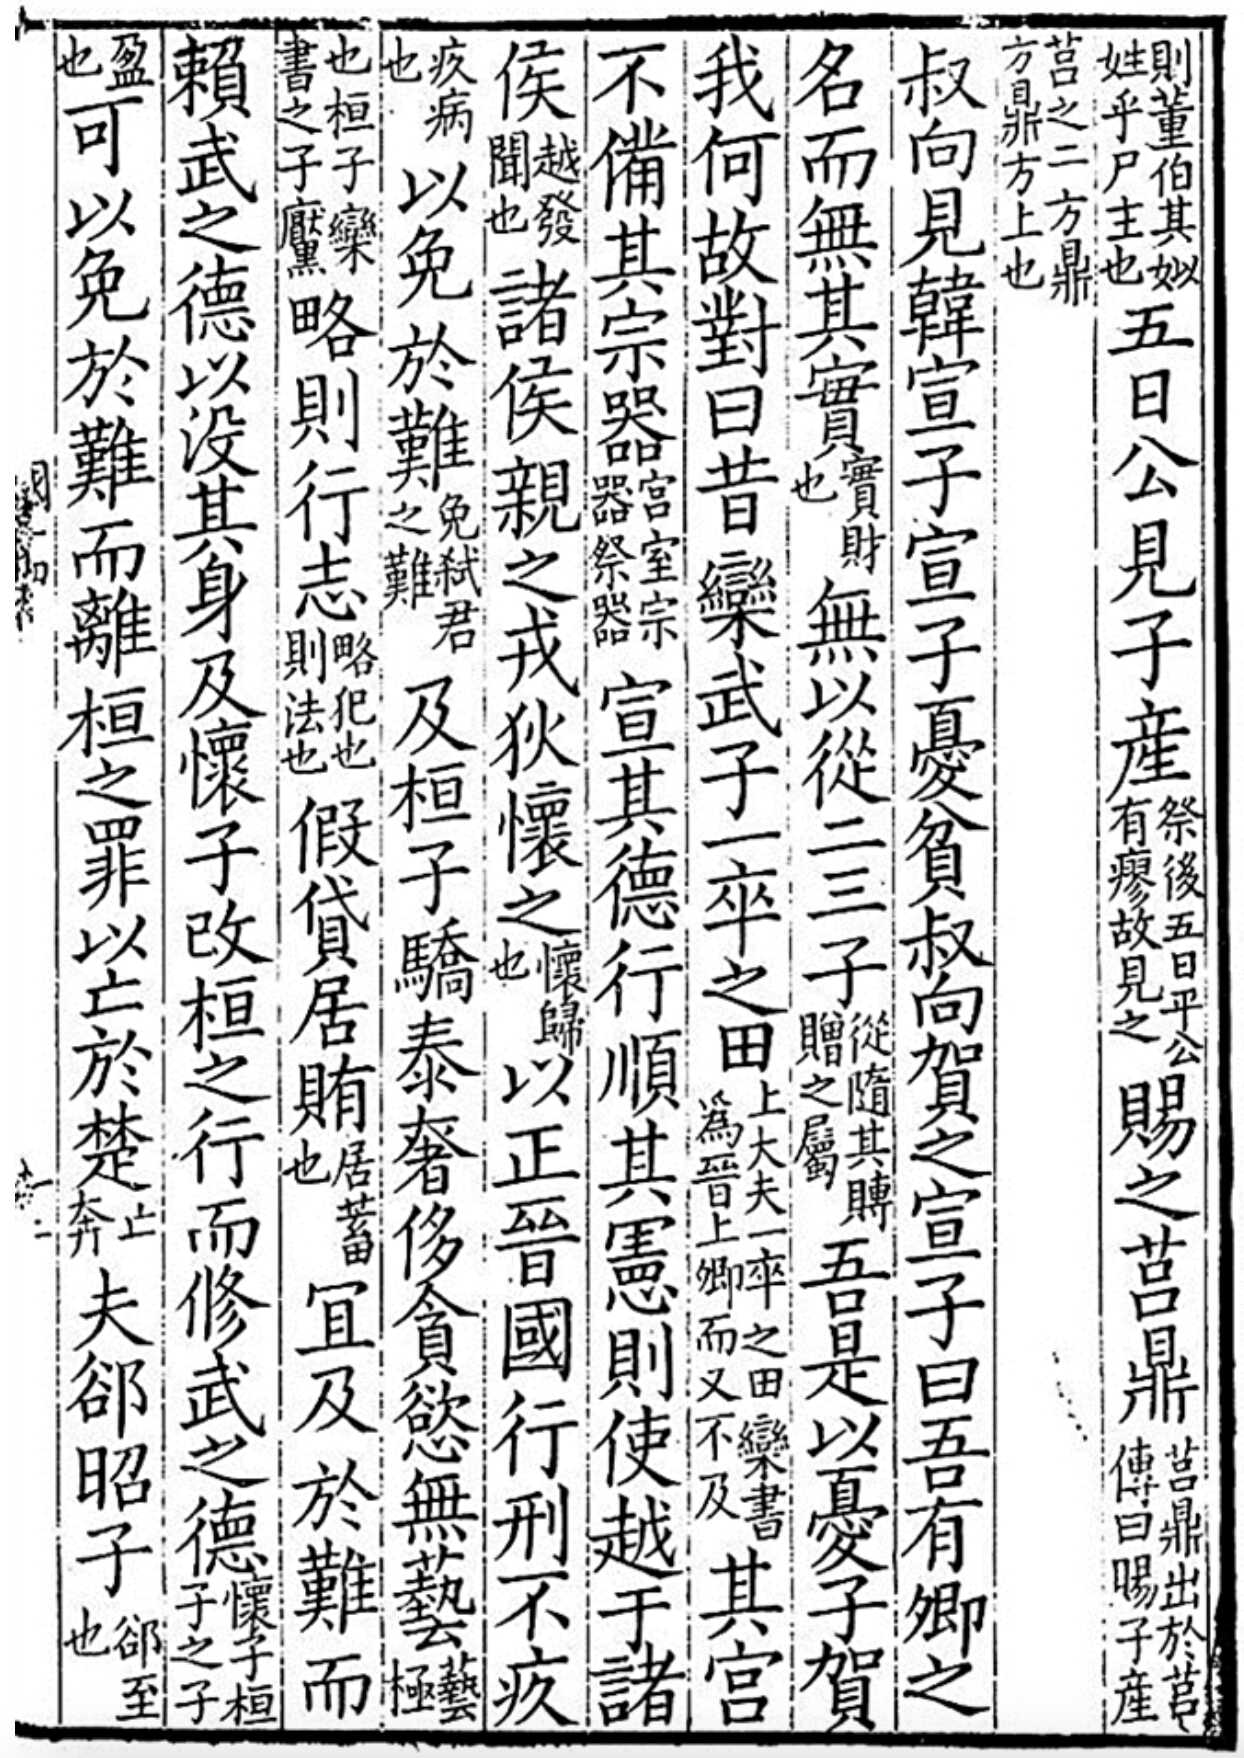 則董伯其姒姓乎尸主也五日公見子產祭後五日平公有瘳故見之賜之莒鼎莒鼎出於莒傳曰賜子產
莒之二方鼎方鼎方上也
叔向見韓宣子宣子憂貧叔向賀之宣子曰吾有卿之
名而無其實實財也無以從二三子從隨其賻贈之屬吾是以憂子賀
我何故對曰昔欒武子一卒之田上大夫一卒之田欒書為晉上卿而又不及其宮
不備其宗器宮室宗器祭器宣其德行順其憲則使越于諸
侯越發聞也諸侯親之戎狄懷之懷歸也以正晉國行刑不疚
疚病也以免於難免弒君之難及桓子驕泰奢侈貪慾無藝藝極
也桓子欒書之子黶略則行志略犯也則法也假貸居賄居蓄也宜及於難而
賴武之德以没其身及懷子改桓之行而修武之德懷子桓子之子
盈也可以免於難而離桓之罪以亡於楚亡奔夫郤昭子郤至也